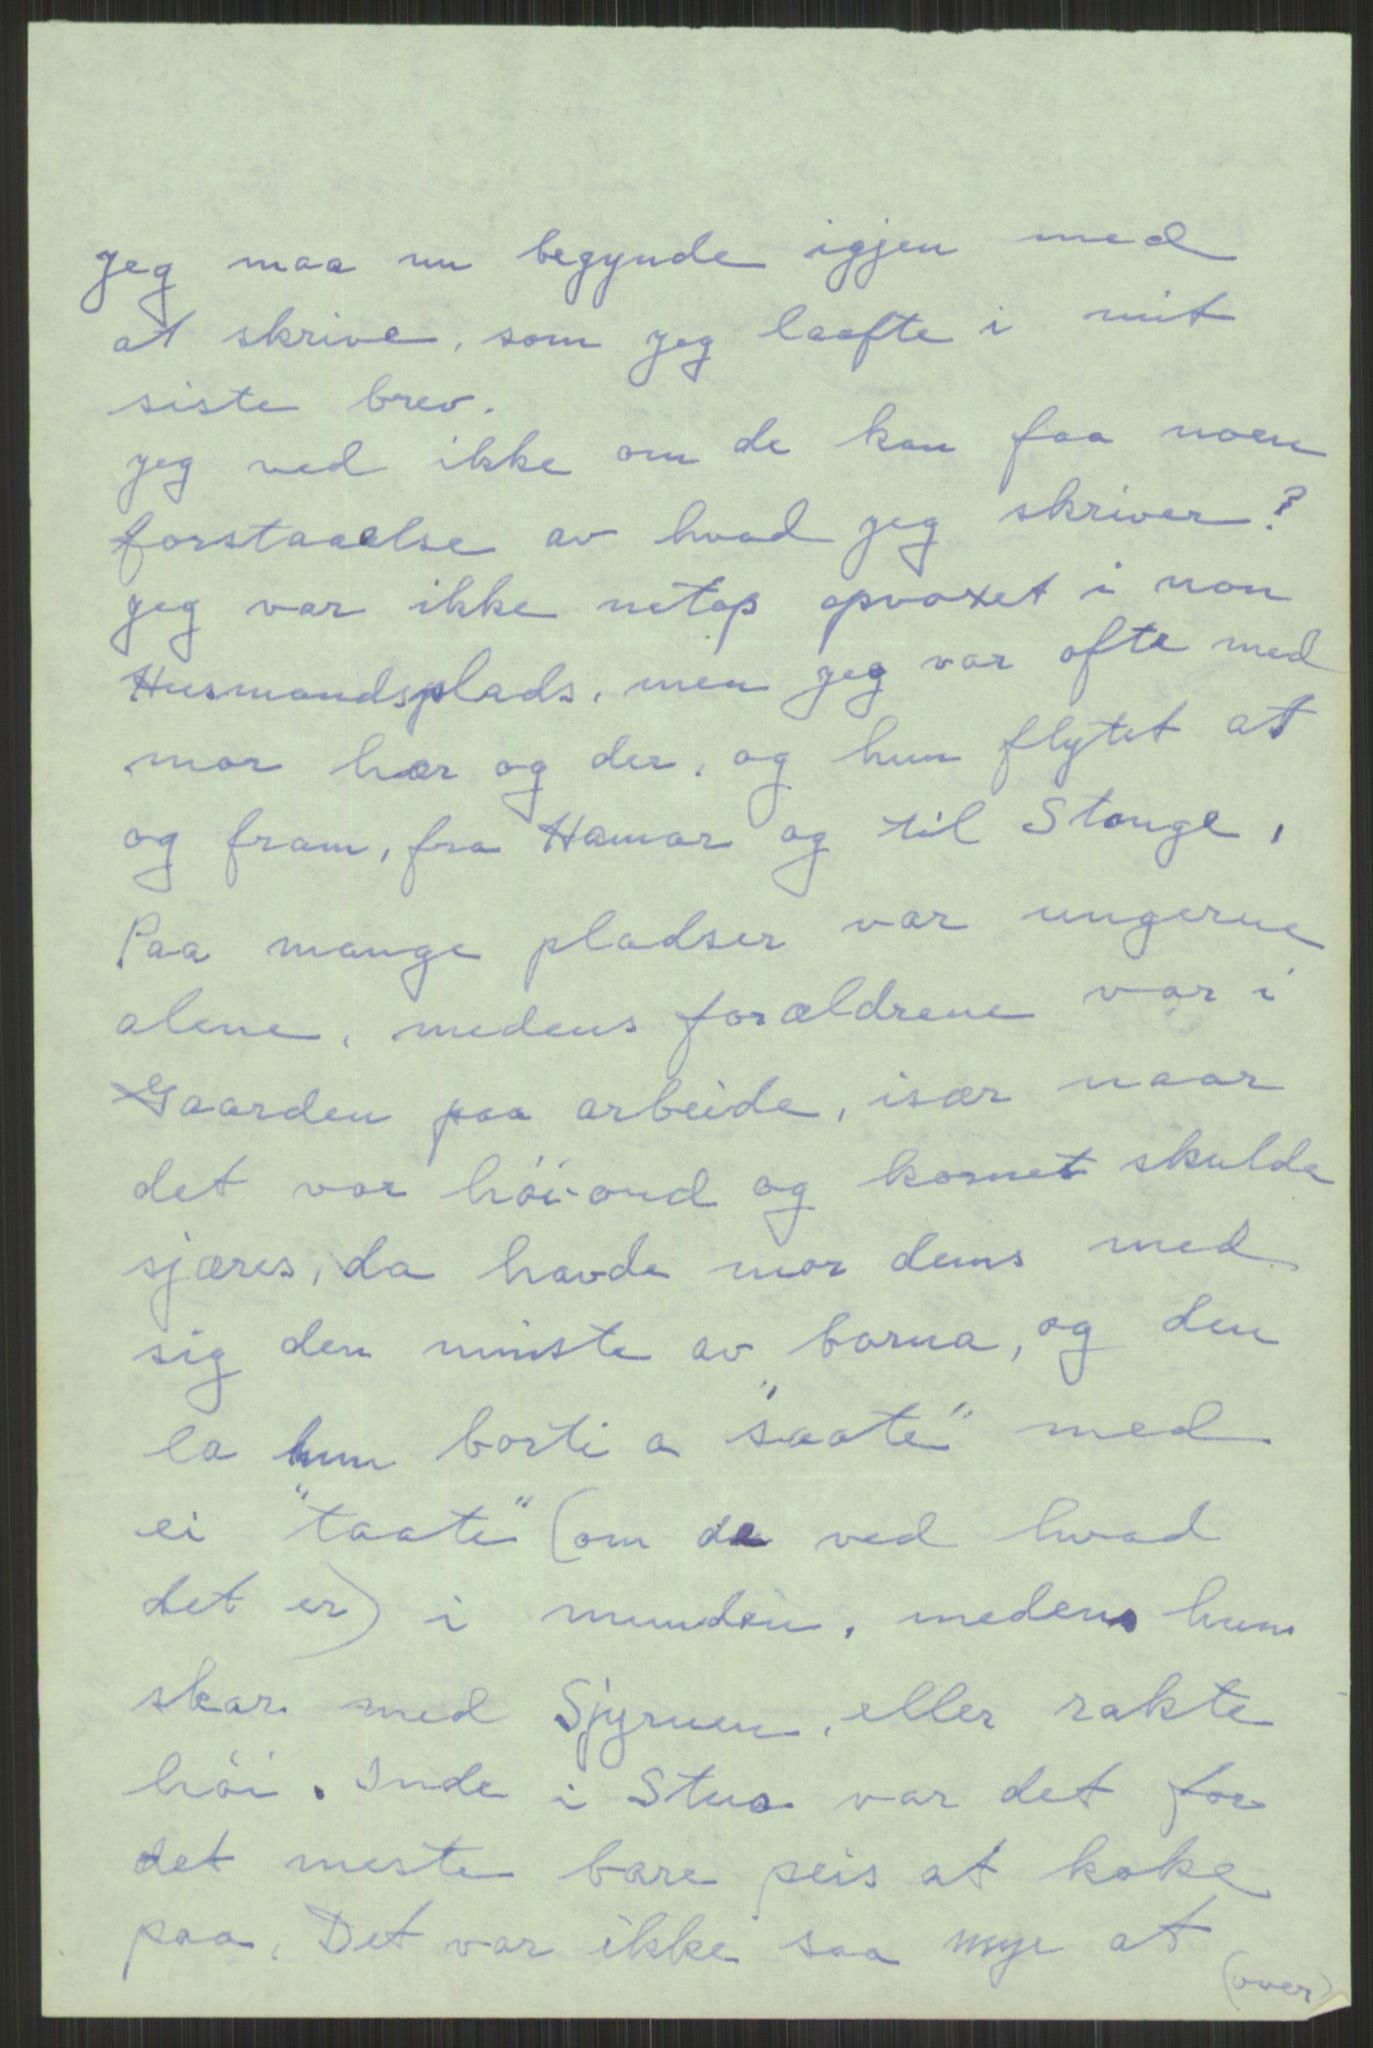 Jeg maa nu begynde igjen med
at skrive, som jeg laafte i mit
siste brev.
jeg ved ikke om de kan faa noen
forstaaelse av hvad jeg skriver?
jeg var ikke netop opvoxet i non
Husmandsplads, men jeg var ofte med
mor hær og der, og hun flytet at
og fram, fra Hamar og til Stange,
Paa mange pladser var ungerne
alene, medens forældrene var i
Gaarden paa arbeide, især naar
det var höi-ond og kornet skulde
sjæres, da havde mor dems med
sig den minste av borna, og den
la hun borti a "saate" med
ei "taate" (om de ved hvad
det er) i munden, medens hun
skar med Sjyruen, eller rakte
höi. Inde i Stua var det for
det meste bare peis at koke
paa, Det var ikke saa mye at
(over)